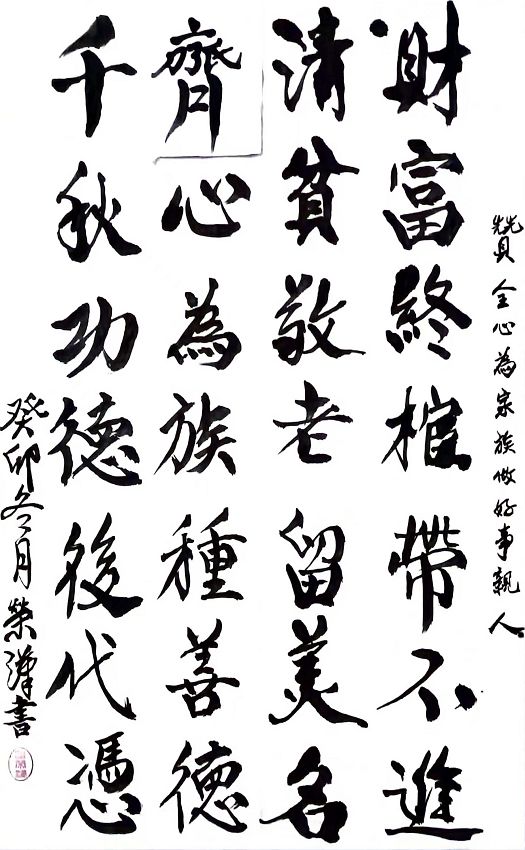 贊全心為家族做好事親人
財富終棺帶不進
清貧敬老留美名
齊心為族種善德
千秋功德後代憑
癸卯冬月榮漢書